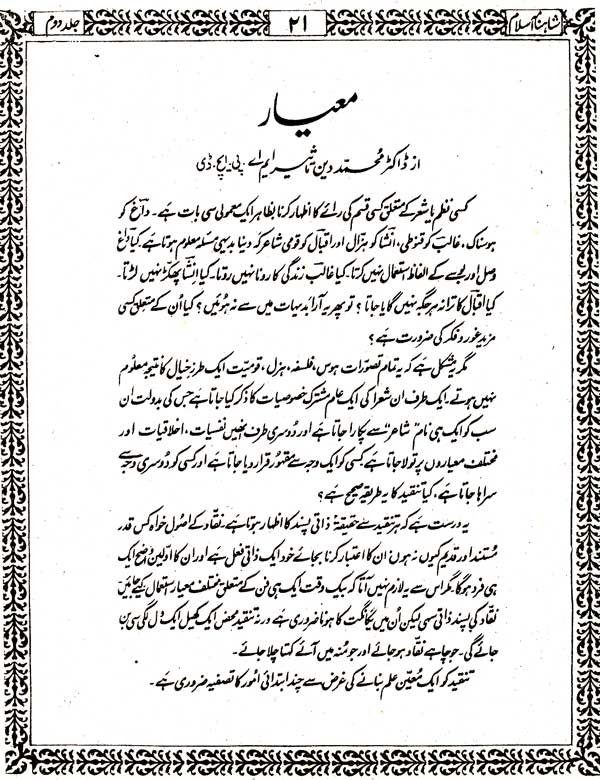 شاہنامہ اسلام
۲۱
جلد دوم
معیار
از ڈاکٹر محمد دین تاثیر ایم اے۔ پی۔ ایچ۔ ڈی
کسی نظم یا شعر کے متعلق کسی قسم کی رائے کا اظہار کرنا بظاہر ایک معمولی سی بات ہے۔ داغ کو
ہوسناک، غالب کو قنوطی، انشا کو ہزال اور اقبال کو قومی شاعر کہہ دینا بدیہی سا معلوم ہوتا ہے کیا داغ
وصل اور بوسے کے الفاظ استعمال نہیں کرتا۔ کیا غالب زندگی کا رونا نہیں روتا۔ کیا انشا پھکڑ نہیں لڑتا۔
کیا اقبال کا ترانہ ہر جگہ نہیں گایا جاتا؟ تو پھر یہ آرا بدیہات میں سے نہ ہوئیں؟ کیا اُن کے متعلق کسی
مزید غور و فکر کی ضرورت ہے؟
مگر مشکل ہے کہ یہ تمام تصورات ہوس، فلسفہ، ہزل، قومیت ایک طرزِ خیال کا نتیجہ معلوم
نہیں ہوتے۔ ایک طرف ان شعرا کی ایک عام مشترک خصوصیات کا ذکر کیا جاتا ہے جس کی بدولت ان
سب کو ایک ہی نام "شاعر" سے پکارا جاتا ہے اور دُوسری طرف انھیں نفسیات، اخلاقیات اور
مختلف معیاروں پر تولا جاتا ہے کسی کو ایک وجہ سے مقہور قرار دیا جاتا ہے اور کسی کو دُوسری وجہ سے
سراہا جاتا ہے، کیا تنقید کا یہ طریقہ صحیح ہے؟
یہ درست ہے کہ ہر تنقید سے حقیقۃً ذاتی پسند کا اظہار ہوتا ہے۔ نقاد کے اصول خواہ کس قدر
مُستند اور قدیم کیوں نہ ہوں۔ ان کا اعتبار کرنا بجائے خود ایک ذاتی فعل ہے اور ان کا اوّلین وضع ایک
ہی فرد ہوگا۔ مگر اس سے یہ لازم نہیں آتا کہ بیک وقت ایک ہی فن کے متعلق مختلف معیار استعمال کیے جائیں
نقاد کی پسند ذاتی سہی لیکن اُس میں یگانگت کا ہونا ضروری ہے ورنہ تنقید محض ایک کھیل ایک دل لگی سی بن
جائے گی۔ جو چاہے نقاد ہو جائے اور جو مُنہ میں آئے کہتا چلا جائے۔
تنقید کو ایک مُعیّن علم بنانے کی غرض سے چند ابتدائی امُور کا تصفیہ ضروری ہے۔